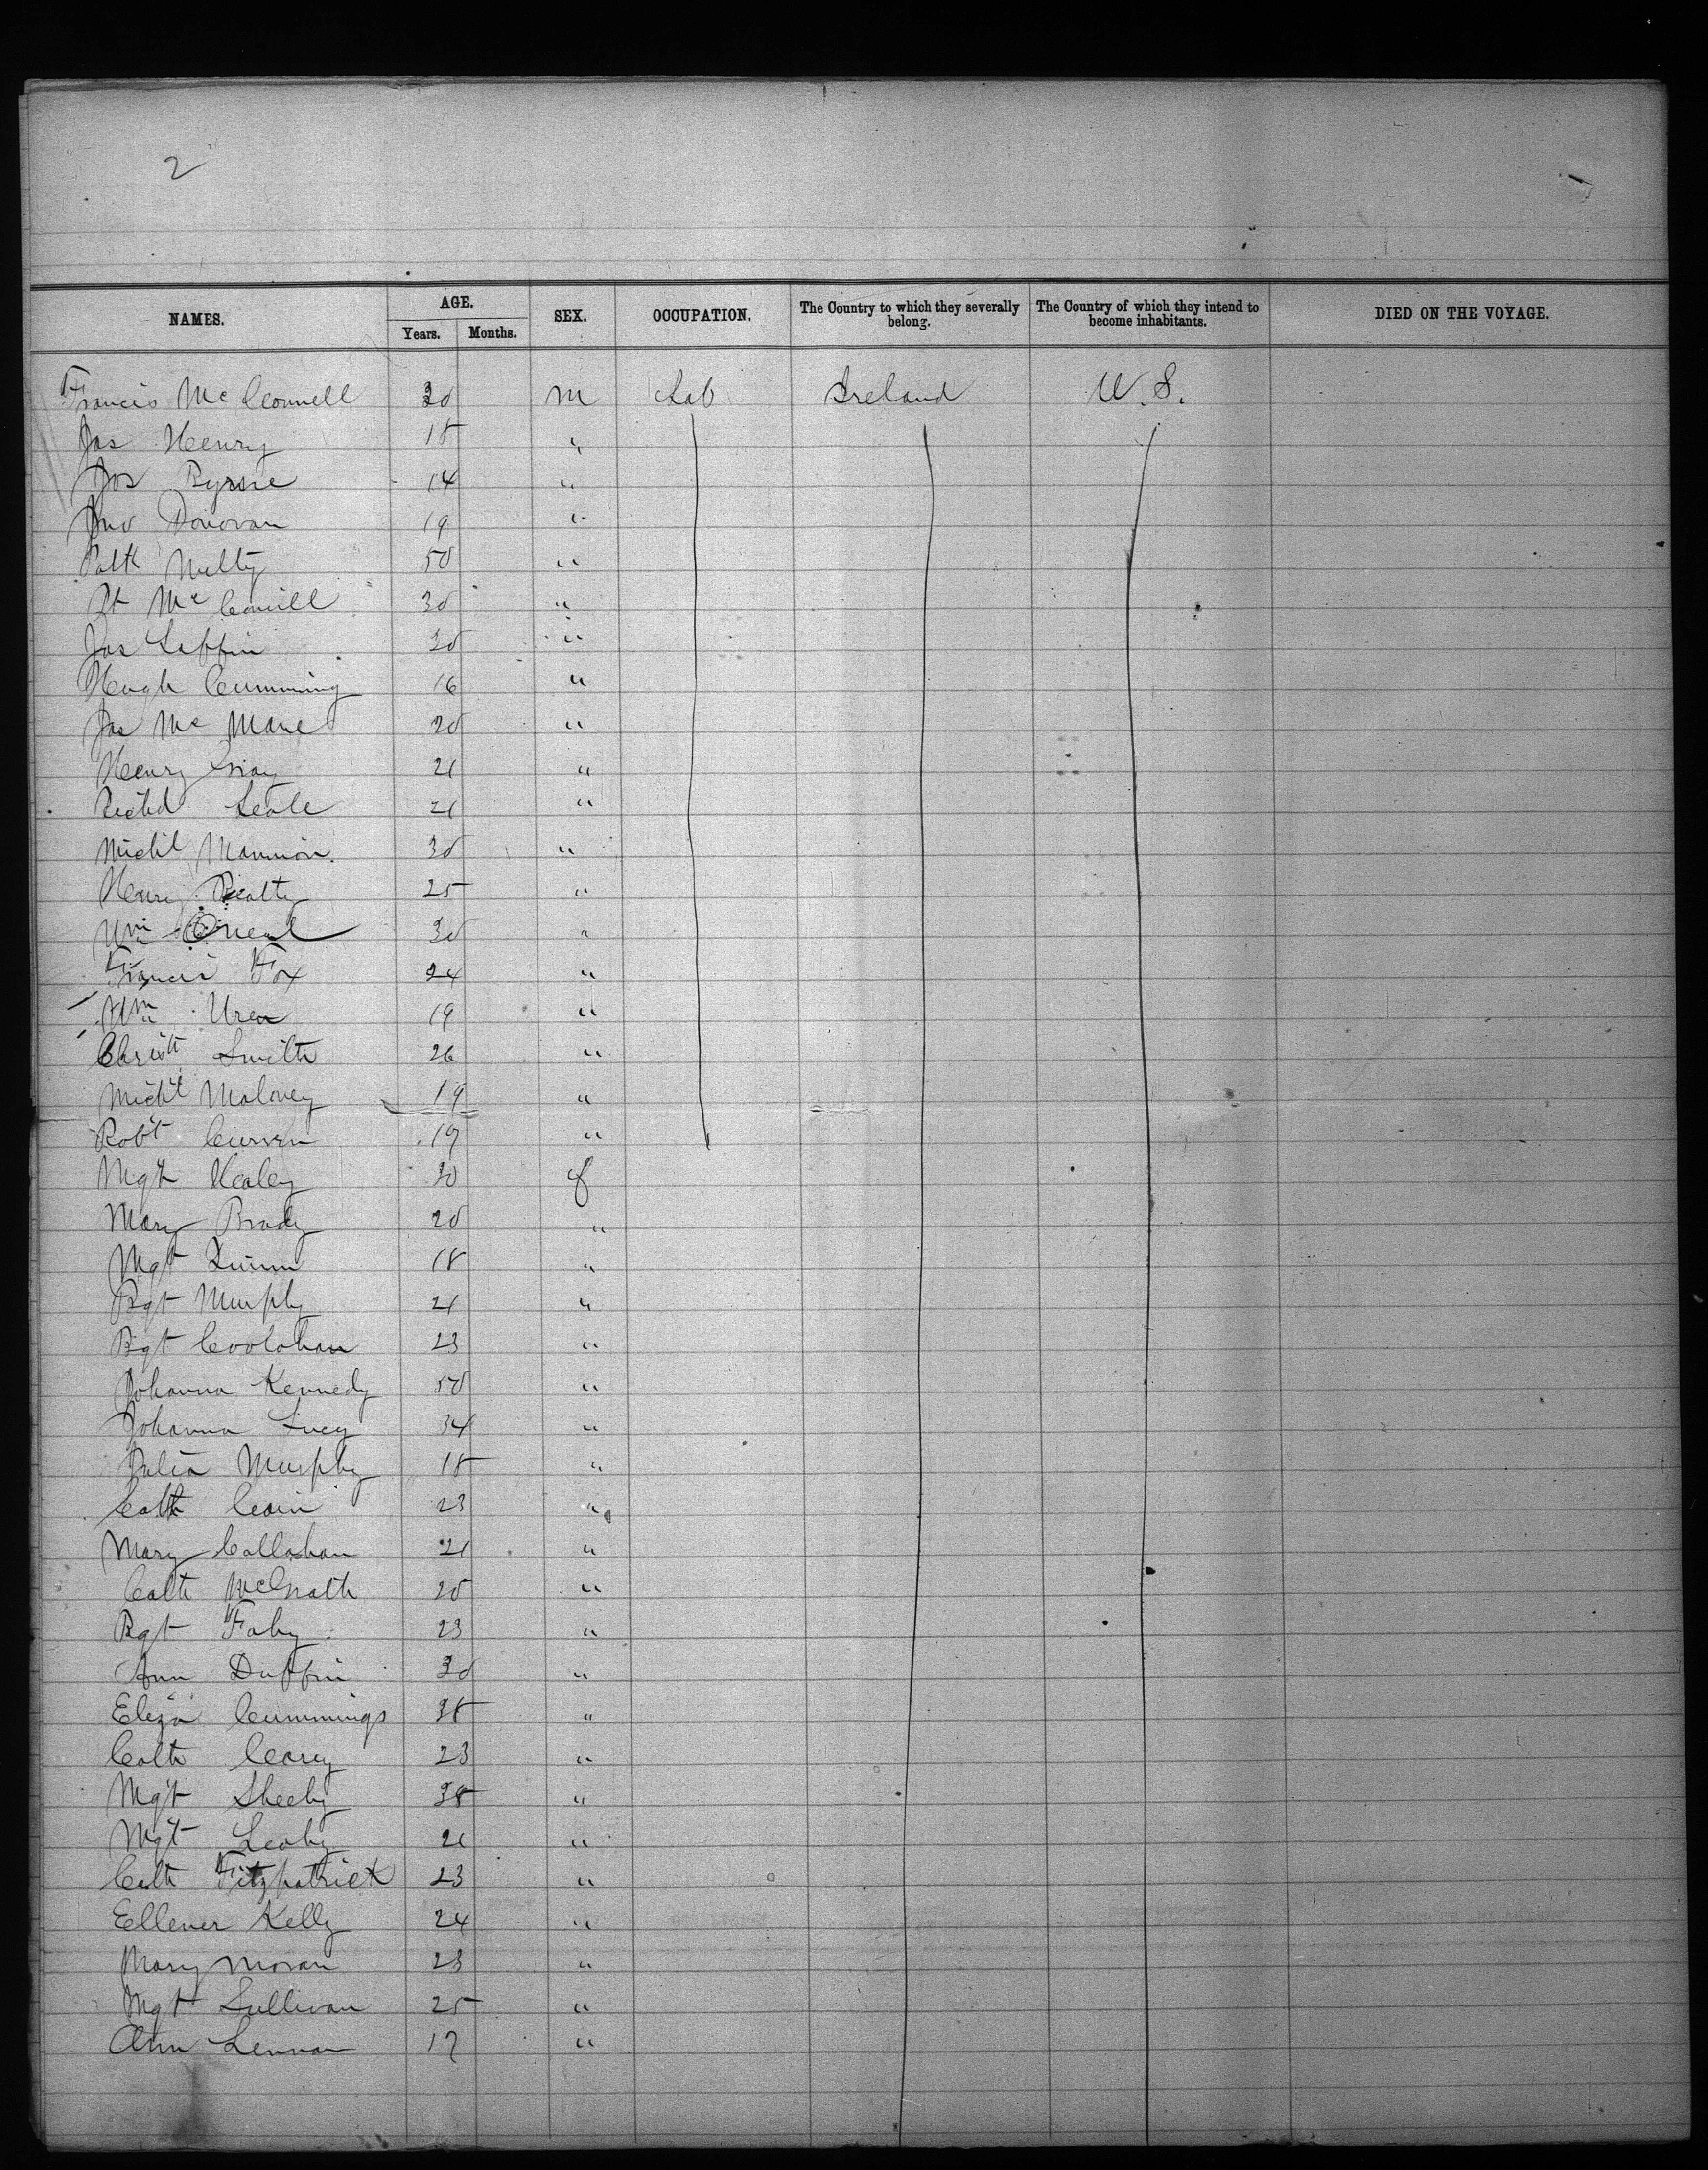 2
NAMES. AGE. SEX. OCCUPATION. The Country to which they severally belong. The Country of which they intend to become inhabitants. DIED ON THE VOYAGE.
Years. Months.
Francis McConnell 30 M Lab Ireland U.S.
Jas Henry 18 "
Jos Byrne 14 "
Jno Donovan 19 "
Patk Nulty 50 "
Pt Mc 30 "
Jas Laffin 30 "
Hugh Cumming 16 "
Jas Mc Mane 20 "
Henry Gray 21 "
Richd 21 "
Michl Mannion 30 "
Henry Beatty 25 "
Wm Oneal 30 "
Francis Fox 24 "
Wm Uren 19 "
Christ Smith 26 "
Michl Maloney 19 "
Robt Curren 19 "
Mgt Healey 30 f
Mary Brady 20 "
Mgt Quinn 18 "
Bgt Murphy 21 "
Bgt Coolahan 23 "
Johanna Kennedy 50 "
Johanna Lucy 34 "
Julia Murphy 18 "
Cath Cain 23 "
Mary Callahan 21 "
Cath McGrath 20 "
Bgt Fahy 23 "
Ann Duffin 30 "
Eliza Cummings 38 "
Cath Carey 23 "
Mgt Sheehy 38 "
Mgt Leahy 21 "
Cath Fitzpatrick 23 "
Ellener Kelly 24 "
Mary Moran 23 "
Mgt Sullivan 25 "
Ann Lennan 17 "